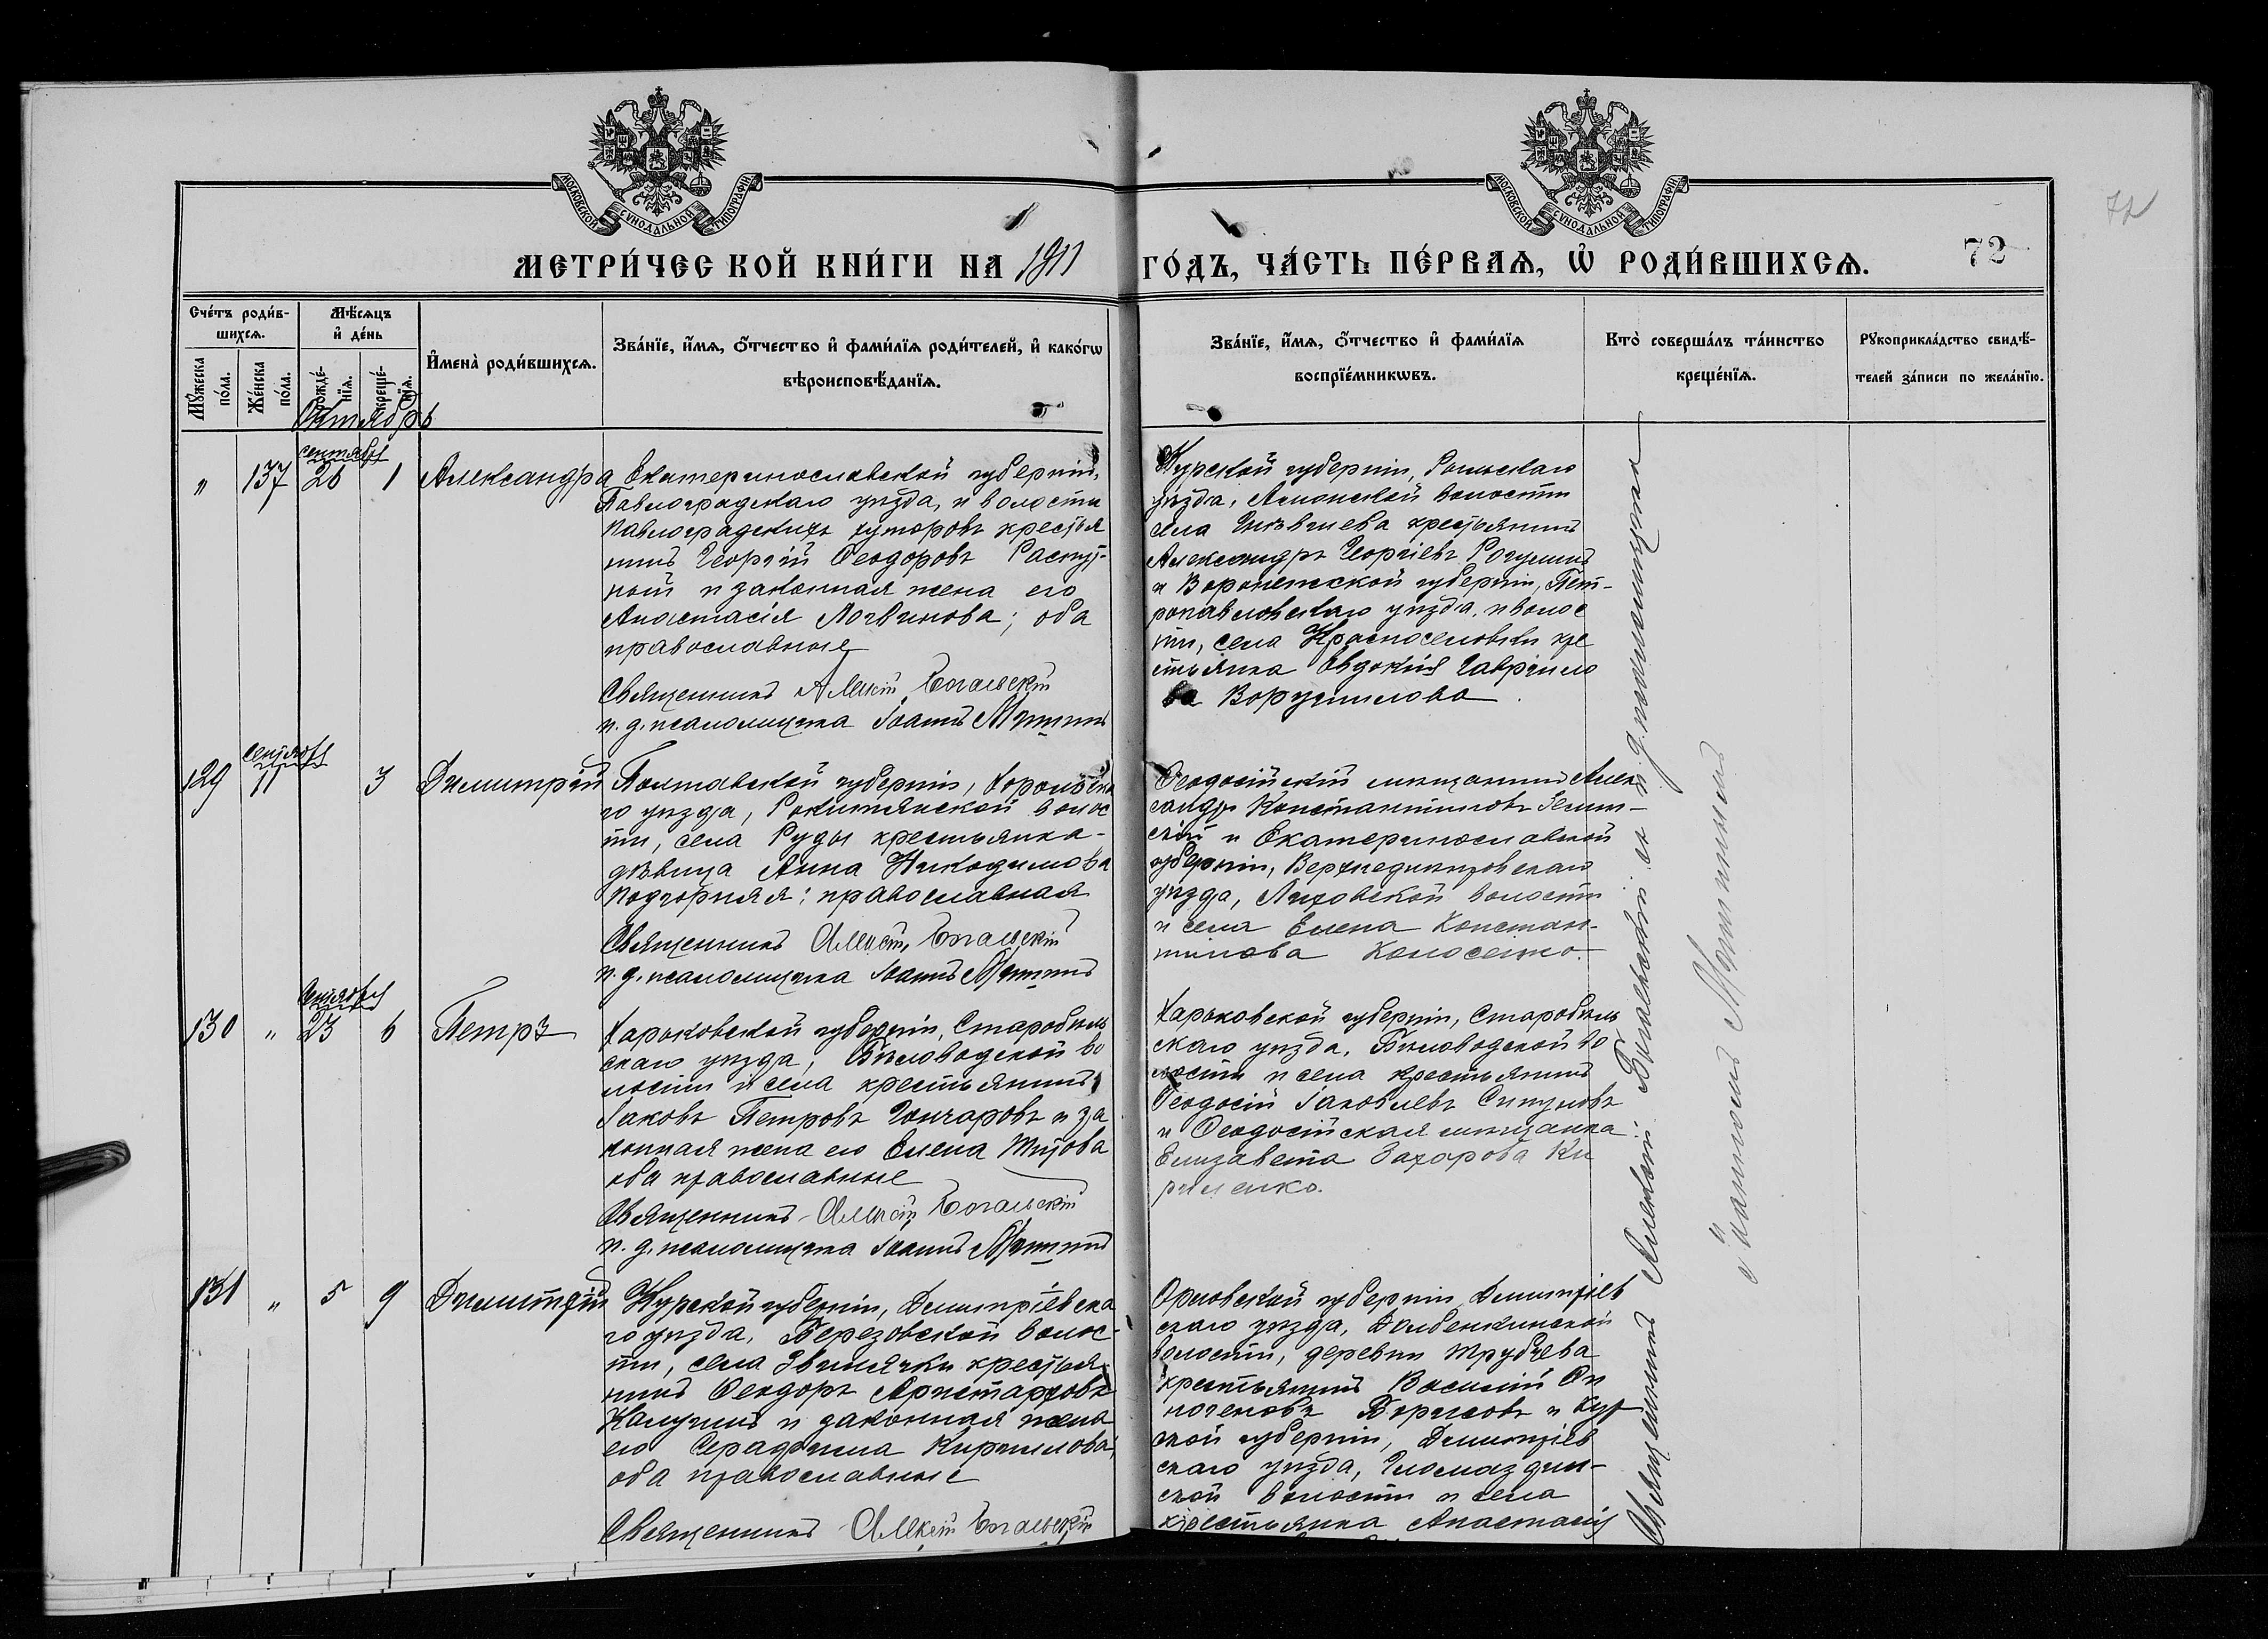 МОСКОВСКОЙ СУНОДАЛЬНОЙ ТИПОГРАФІИ
МОСКОВСКОЙ СУНОДАЛЬНОЙ ТИПОГРАФІИ
МЕТРИ́ЧЕСКОЙ КНИ́ГИ НА 1911 ГО́ДЪ, ЧА́СТЬ ПЕ́РВАѦ, Ѡ҆ РОДИ́ВШИХСѦ.
72
72
Сче́тъ роди́в-
шихсѧ.
Мꙋжеска
по́ла.
Же́нска
по́ла.
Мѣ́сѧцъ
и҆ де́нь
рожде́-
нїѧ.
креще́-
нїѧ.
И҆мена̀ роди́вшихсѧ.
Зва́нїе, и҆́мѧ, ѻ҆́тчество и҆ фами́лїѧ роди́телей, и҆ како́гѡ
вѣроисповѣ́данїѧ.
Зва́нїе, и҆́мѧ, ѻ҆́тчество и҆ фами́лїѧ
воспрїе́мникѡвъ.
Кто̀ соверша́лъ та́инство
креще́нїѧ.
Рꙋкоприкла́дство свидѣ́-
телей за́писи по жела́нїю.
Октябрь
сентября
" 137 26 1 Александра
Екатеринославской губерніи,
Павлоградскаго уѣзда, и волости
Павлоградскихъ хуторовъ крестья
нинъ Георгій Ѳеодоровъ Распут-
ный и законная жена его
Анастасія Логвинова; оба
православные
Священникъ Алексій Богаевскій
и. д. псаломщика Іоаннъ
Курской губерніи, Рыльскаго
уѣзда, волости
села крестьянинъ
Александръ Георгіевъ
и Воронежской губерніи, Пет-
ропавловскаго уѣзда, и волос
ти, села Красноселовки кре
стьянка Евдокія Гаврило
ва Ворушилова
сентября
129 11 3 Димитрій
Полтавской губерніи, Хорольска
го уѣзда, Рокитянской волос
ти, села Руды крестьянка-
дѣвица Анна Никодимова
Подгорняя; православная
Священникъ Алексій Богаевскій
и. д. псаломщика Іоаннъ
Ѳеодосійскій мѣщанинъ Алек
сандръ Константиновъ
скій и Екатеринославской
губерніи, Верхнеднѣпровскаго
уѣзда, Лиховской волости
и села Елена Констан-
тинова
сентября
130 " 23 6 Петръ
Харьковской губерніи, Старобѣль
скаго уѣзда, Бѣловодской во
лости и села крестьянинъ
Іаковъ Петровъ Гончаровъ и за
конная жена его Елена Титова
оба православные
Священникъ Алексій Богаевскій
и. д. псаломщика Іоаннъ
Харьковской губерніи, Старобѣль
скаго уѣзда, Бѣловодской во
лости и села крестьянинъ
Ѳеодосій Іаковлевъ
и Ѳеодосійская мѣщанка
Елизавета Захарова Ки
риленко.
131 " 5 9 Димитрій
Курской губерніи, Димитріевска
го уѣзда, Березовской волос-
ти, села Звенячки крестья
нинъ Ѳеодоръ Аристарховъ
Калугинъ и законная жена
его Серафима Кириллова,
оба православные
Священникъ Алексій Богаевскій
Орловской губерніи Димитріев
скаго уѣзда, Долбенкинской
волости, деревни Трубчева
крестьянинъ Василій
Борисовъ и Кур
ской губерніи, Димитріев
скаго уѣзда, Гломаздин-
ской волости и села
крестьянка Анастасія
Священникъ Алексій Богаевскій съ и. д. псаломщика
Іоанномъ